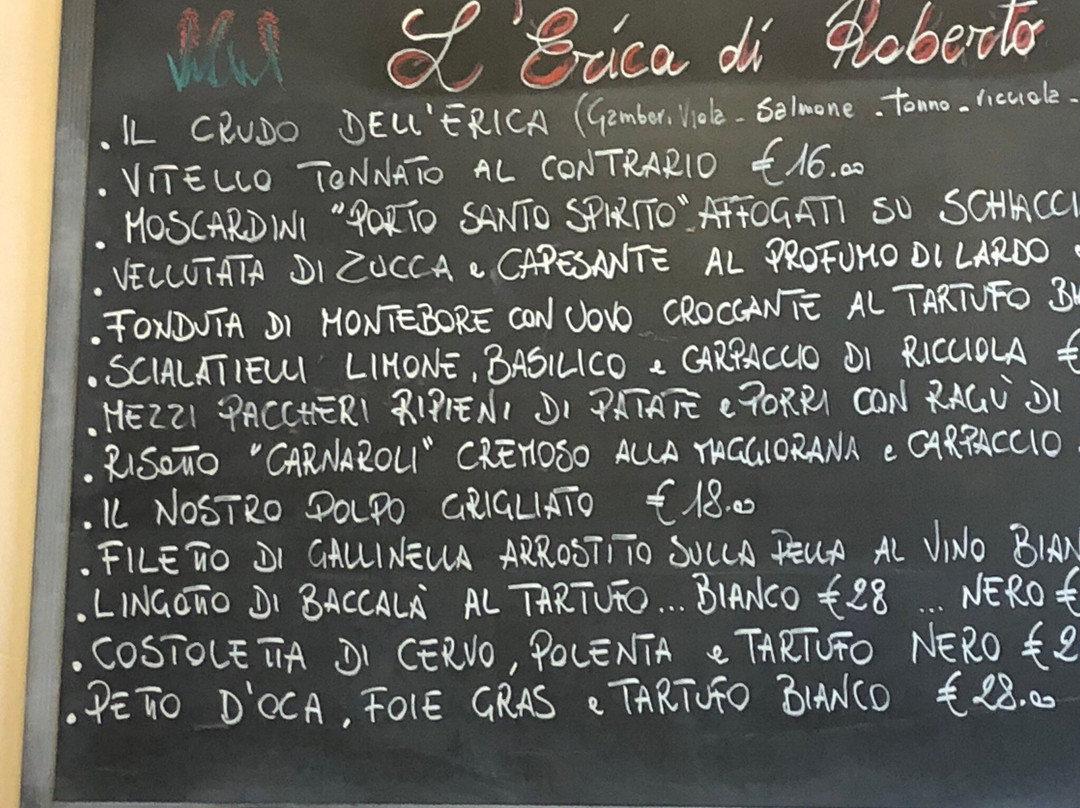 L'Erica di Roberto
. IL CRUDO DELL'ERICA (Gamberi Viola - Salmone - Tonno - ricciola -
. VITELLO TONNATO AL CONTRARIO €16.00
. MOSCARDINI "PORTO SANTO SPIRITO" AFFOGATI SU SCHIACCI
. VELLUTATA DI ZUCCA e CAPESANTE AL PROFUMO DI LARDO
. FONDUTA DI MONTEBORE CON UOVO CROCCANTE AL TARTUFO BI
. SCIALATIELLI LIMONE, BASILICO e CARPACCIO DI RICCIOLA €
. MEZZI PACCHERI RIPIENI DI PATATE e PORRI CON RAGÙ DI
. RISOTTO "CARNAROLI" CREMOSO ALLA MAGGIORANA e CARPACCIO
. IL NOSTRO POLPO GRIGLIATO €18.00
. FILETTO DI GALLINELLA ARROSTITO SULLA PELLA AL VINO BIAN
. LINGOTTO DI BACCALÀ AL TARTUFO... BIANCO €28 ... NERO €
. COSTOLETTA DI CERVO, POLENTA e TARTUFO NERO €2
. PETTO D'OCA, FOIE GRAS e TARTUFO BIANCO €28.00